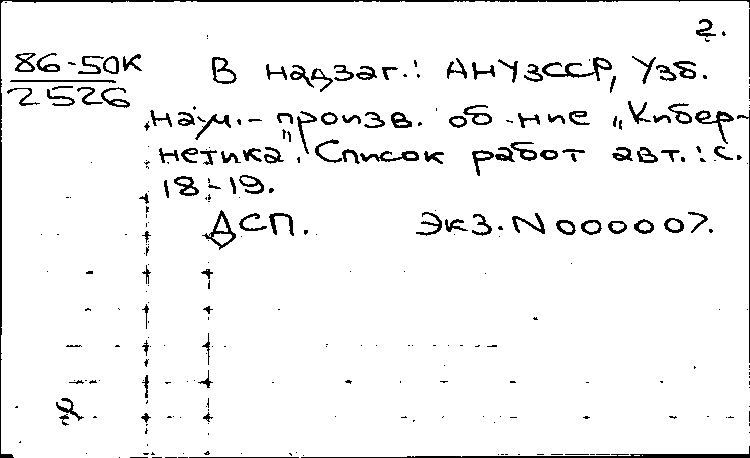 2.
86-50К
2526
В надзаг.: АНУзССР, Узб.
науч.-произв. об-ние „Кибер-
нетика". Список работ авт.: с.
18-19.
ДСП. Экз. N 000007.